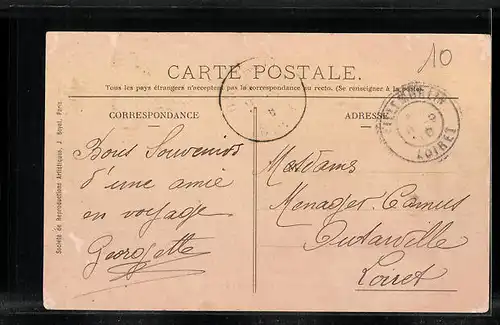 10
CARTE POSTALE.
Tous les pays étrangers n'acceptent pas la correspondance au recto. (Se renseigner à la poste)
CORRESPONDANCE
ADRESSE
Bons Souvenirs
d'une amie
en voyage
Georgette
Mesdames
Menager-Camus
Outarville
Loiret
LOIRET
Société de Reproductions Artistiques, J. Boyet, Paris.